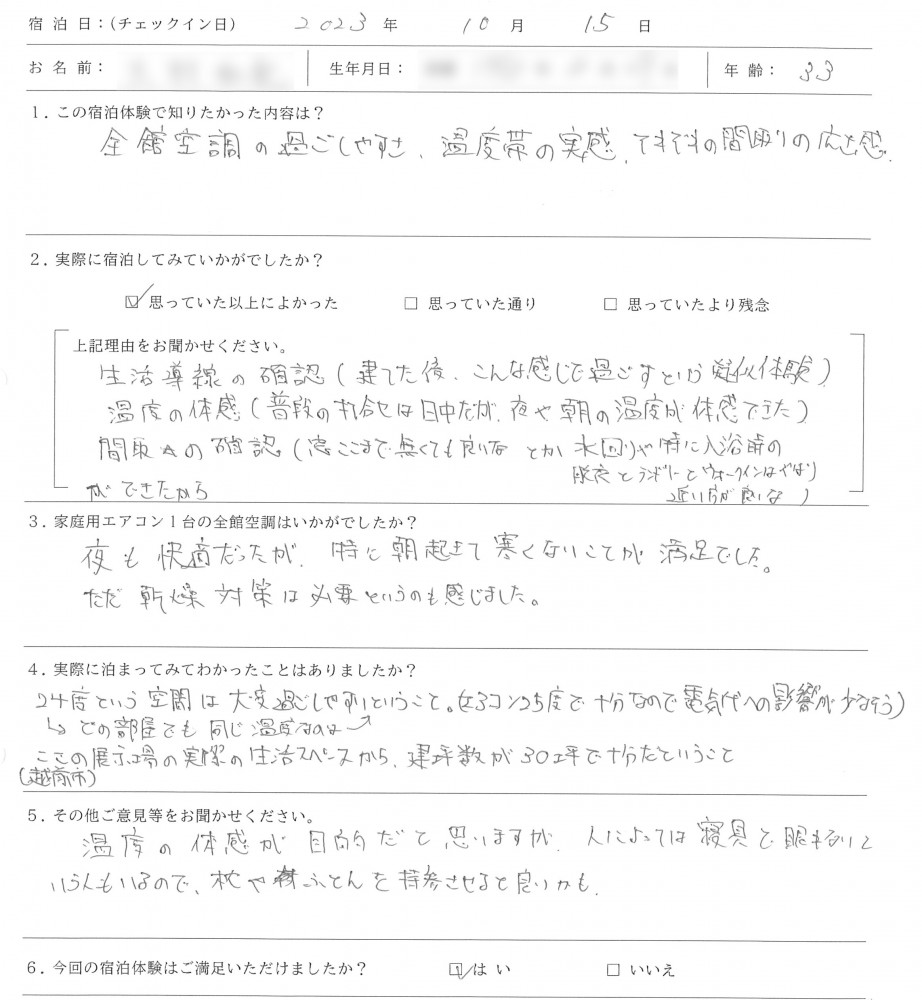 宿 泊 日：（チェックイン日） 2023 年 10 月 15 日
お 名 前： 生年月日： 年 齢： 33
1．この宿泊体験で知りたかった内容は？
全館空調の過ごしやすさ、温度帯の実感、それぞれの間取りの広さ感。
2．実際に宿泊してみていかがでしたか？
☑ 思っていた以上によかった □ 思っていた通り □ 思っていたより残念
上記理由をお聞かせください。
生活導線の確認（建てた後、こんな感じで過ごすという疑似体験）
温度の体感（普段の打合せは日中だが、夜や朝の温度が体感できた）
間取りの確認（窓ここまで無くても良いな とか 水回りや特に入浴時の
脱衣とランドリーとウォークインはやはり
近い方が良いな）
ができたから
3．家庭用エアコン1台の全館空調はいかがでしたか？
夜も快適だったが、特に朝起きて寒くないことが満足でした。
ただ乾燥対策は必要というのも感じました。
4．実際に泊まってみてわかったことはありましたか？
24度という空間は大変過ごしやすいということ。（エアコン25度で十分なので電気代への影響が少なそう）
↳どの部屋でも同じ温度なのは
ここの展示場の実際の生活スペースから、建坪数が30坪で十分だということ
（越前市）
5．その他ご意見等をお聞かせください。
温度の体感が目的だと思いますが、人によっては寝具で眠れないと
いう人もいるので、枕やふとんを持参させると良いかも。
6．今回の宿泊体験はご満足いただけましたか？ ☑ はい □ いいえ